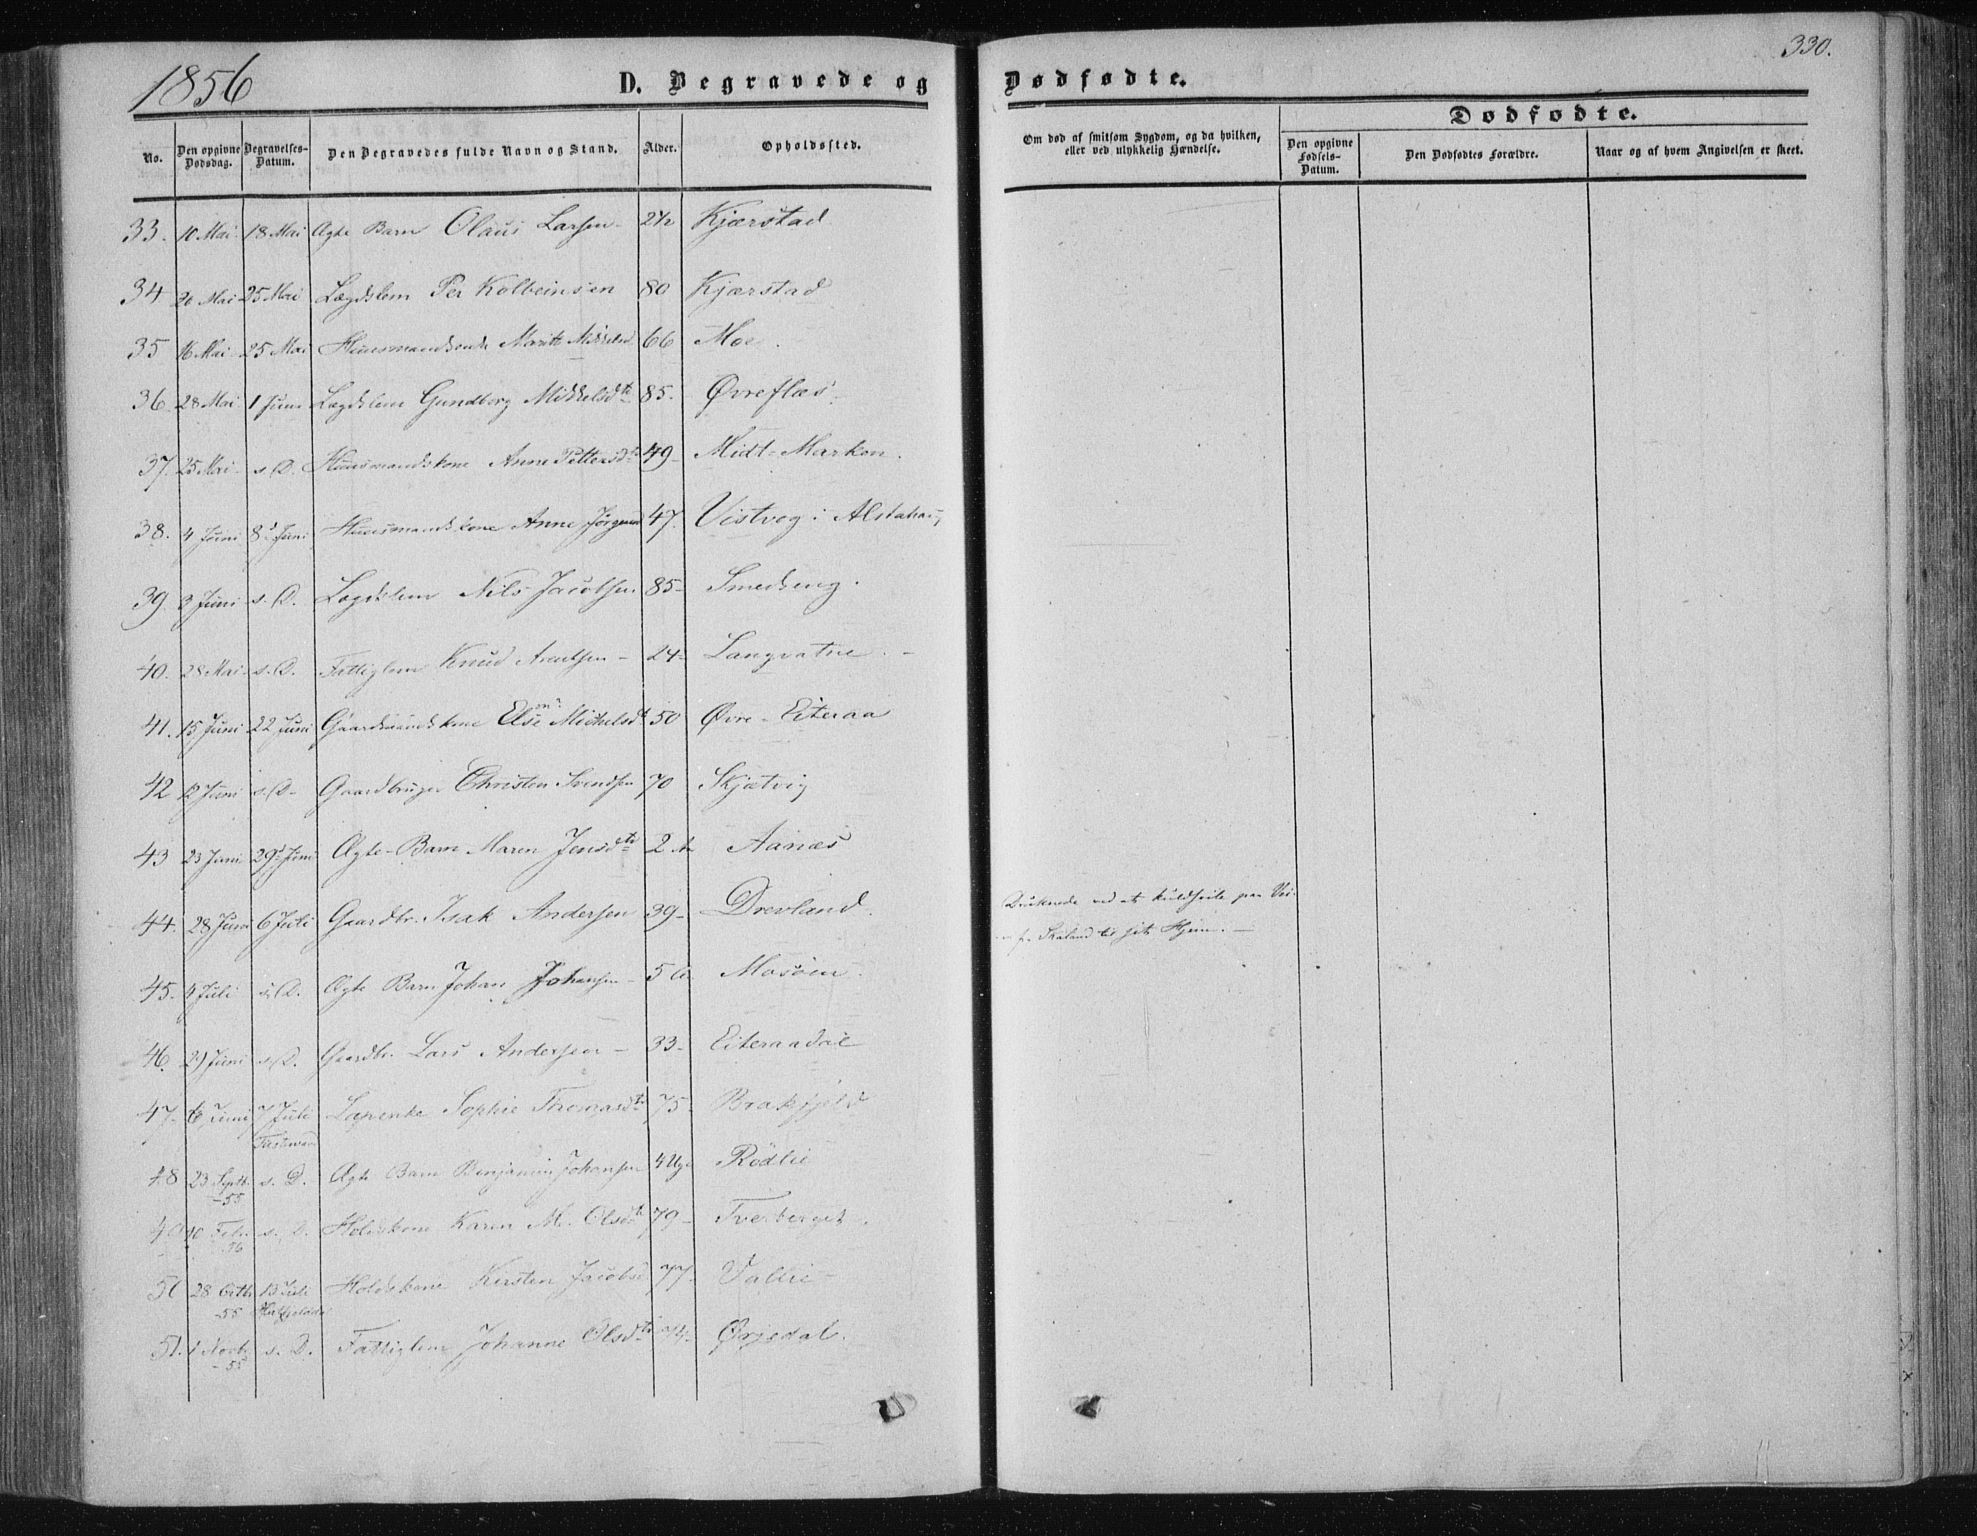 1856
D. Begravede og Dødfødte.
330.
No. Den opgivne Dødsdag. Begravelses-Datum. Den Begravedes fulde Navn og Stand. Alder. Opholdssted.
Om død af smitsom Sygdom, og da hvilken, eller ved ulykkelig Hændelse.
Dødfødte.
Den opgivne Fødsels-Datum. Den Dødfødtes Forældre. Naar og af hvem Angivelsen er skeet.
33. 10 Mai 18 Mai Ægte Barn Olaus Larsen - 2½ Kjærstad
34 20 Mai 25 Mai Lægdslem Per Kolbeinsen 80 Kjærstad
35 16 Mai 25 Mai Huusmandsenke Marit 66 Moe.
36. 28 Mai 1 Juni Lægdslem Gundborg Mikkelsdtr 85. Øvreflæs.
37. 25 Mai. s. D. Huusmandskone Anne Pettersdtr 49- Midt-Marken.
38. 4 Juni 8de Juni Huusmandskone Anne 47. Vistvog i Alstahaug
39. 3 Juni s. D. Lægdslem Nils Jacobsen 85- Smedseng.
40. 28 Mai s. D. Fattiglem Knud Arentsen - 24- Langvatne. -
41. 15 Juni 22 Juni Gaardmandskone Else Mickelsdt 50 Øvre-Eiteraa
42 12 Juni s. D- Gaardbruger Christen Svendsen 70 Skjætvig
43 23 Juni 29de Juni Ægte-Barn Maren Jensdtr 2 Aanæs
44. 28 Juni 6 Juli Gaardbr. Isak Andersen 39- Drevland.
Druknede ved at kuldseile paa Vei-
en fra Skaland til sit Hjem. -
45. 4 Juli s. D. Ægte Barn Johan Johansen - 5 Mosøen.
46. 29 Juni s. D. Gaardbr. Lars Andersen - 33- Eiteraadal
47. 6 Juni 7 Juli Lapenke Sophie Thomasdtr 75- Brakfjeld
48 23 Septb. -55 s. D. Ægte Barn Benjamin Johansen 4 Uge Rødlie
49 10 Febr. 56 s. D. Holdskone Karen M. Olsdtr 79- Tverberget.
50 28 Octb -55 13 Juli Hatfjelddal Holdskone Kirsten Jacobsd 77- Vallie-
51. 1 Novb. -55 s. D. Fattiglem Johanne Olsdtr 74- Ørjedal.